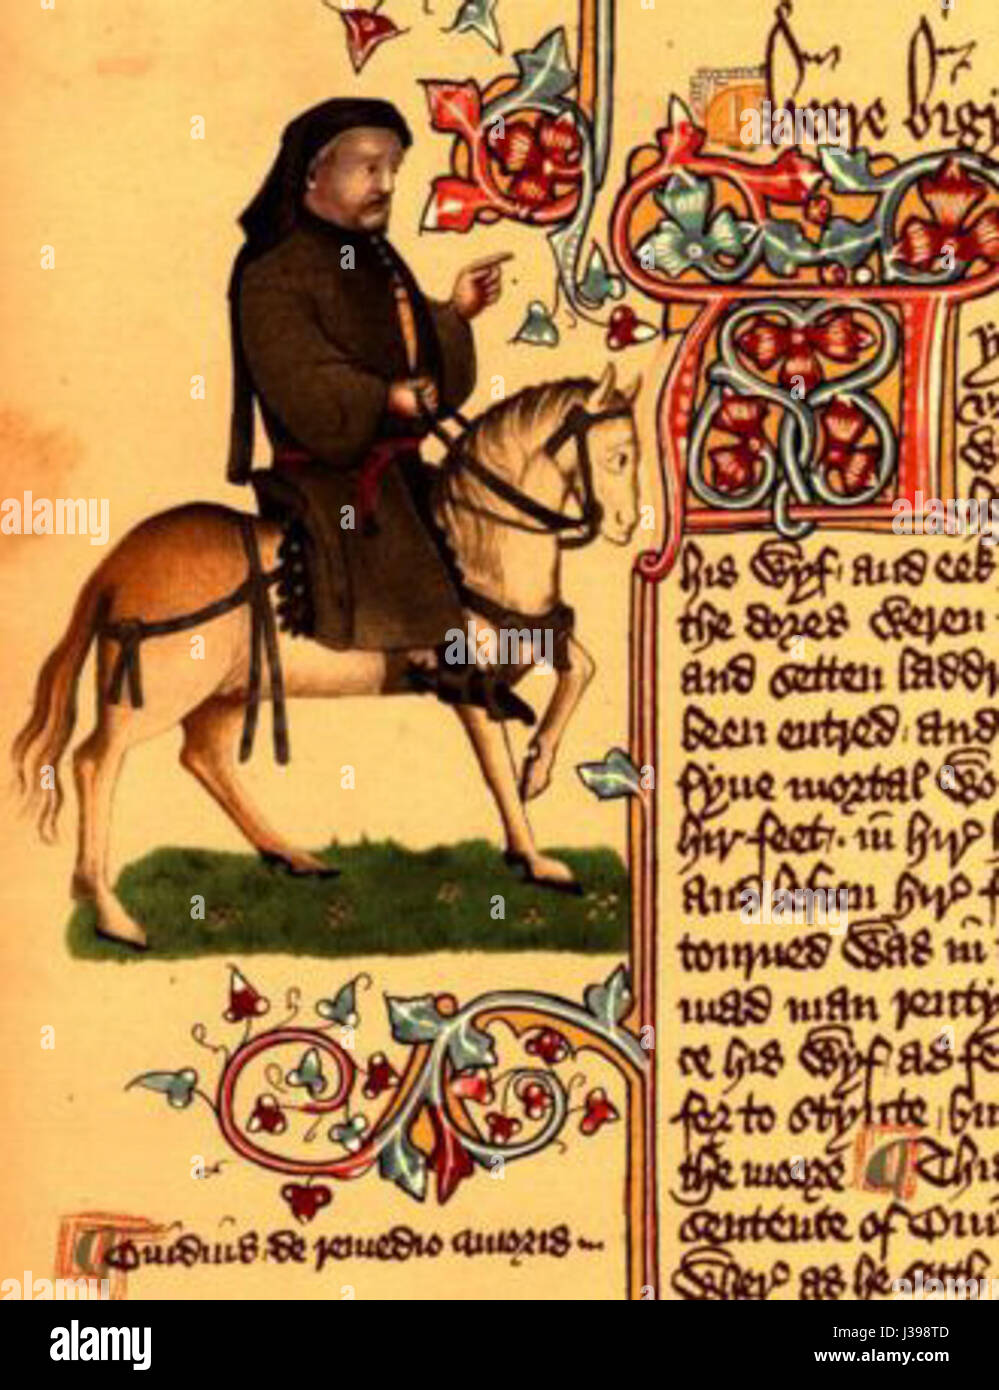 heere bigy
his Wyf and eek
the dores weren
and setten laddr
been entred and
fyue mortal Wo
hir feet in hir h
and leften hir f
tourned Was in
mad man rentyn
ce his Wyf as fe
fer to stynte bu
the moore This
sentence of Oui
Wher as he seith
Ouidius de remedio amoris
alamy
Image ID: J398TD
www.alamy.com